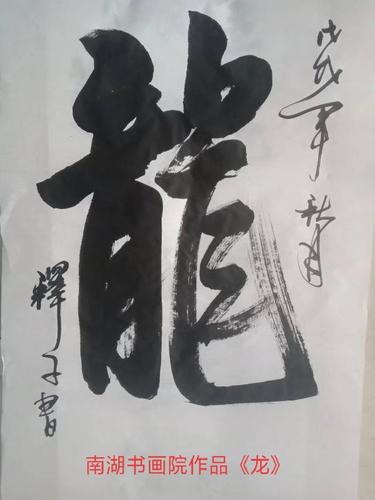 龍
戊戌年秋月
釋子書
南湖书画院作品《龙》